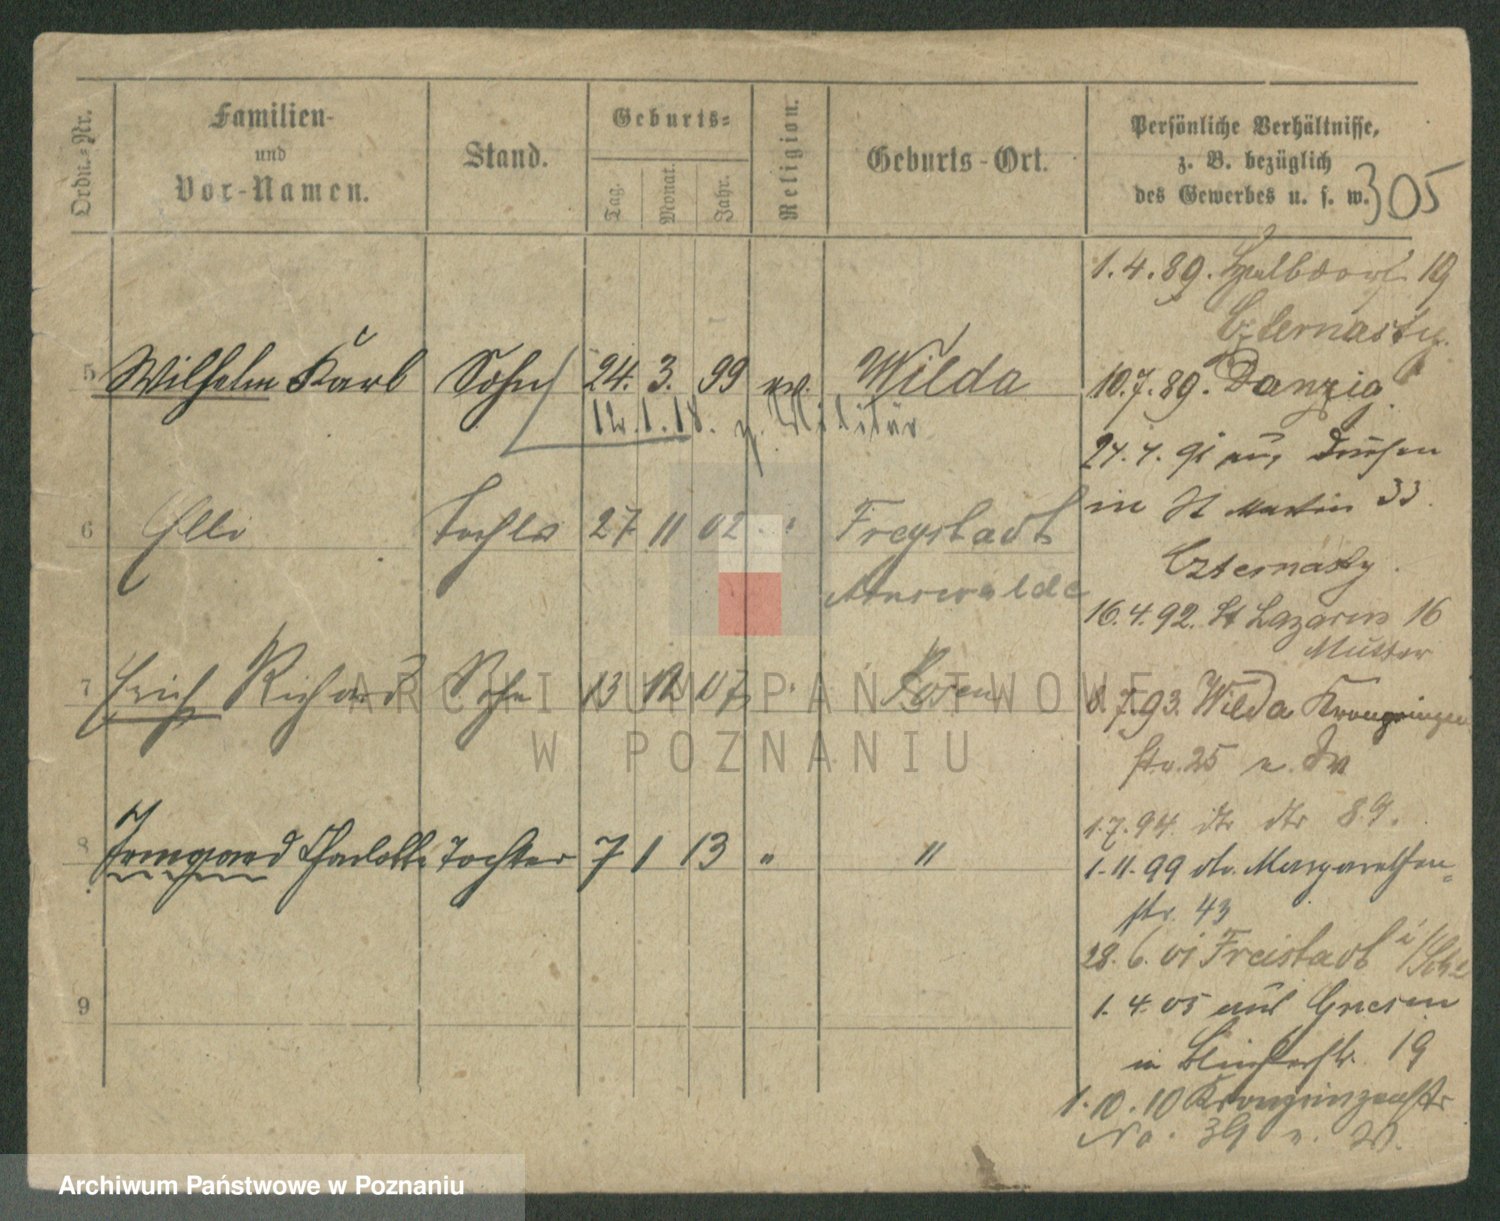 Ordn.-Nr.
Familien-
und
Vor-Namen.
Stand.
Geburts-
Tag.
Monat.
Jahr.
Religion.
Geburts-Ort.
Persönliche Verhältnisse,
z. B. bezüglich
des Gewerbes u. s. w.
305
5 Wilhelm Karl Sohn 24. 3. 99 ev. Wilda
12.1.18. z. Militär
6 Elli Tochter 27 11 02 " Freystadt
Arnswalde
7 Erich Richard Sohn 13 12 07 " Posen
8 Irmgard Charlotte Tochter 7 1 13 " "
9
1.4.89. 19
Czternasty.
10.7.89. Danzig
27.7.91 aus
in St Martin 33.
Czternasty.
16.4.92. St Lazarus 16
Mutter
8.7.93. Wilda Kronprinzen
str. 25
1.7.94. dto dto 89.
1.11.99 dto. Margarethen-
str. 43
28.6.01 Freistadt
1.4.05 aus Gnesen
in 19
1.10.10 Kronprinzenstr
No. 39
ARCHIWUM PAŃSTWOWE
W POZNANIU
Archiwum Państwowe w Poznaniu